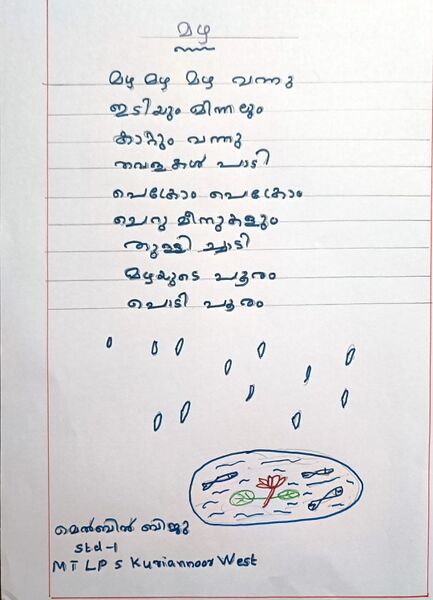 മഴ
മഴ മഴ മഴ വന്നു
ഇടിയും മിന്നലും
കാറ്റും വന്നു
തവളകൾ പാടി
പെക്രോം പെക്രോം
ചെറു മീനുകളും
തുള്ളി ച്ചാടി
മഴയുടെ പൂരം
പൊടി പൂരം
മെൽബിൻ ബിജു
std-1
M T L P S Kuriannoor West